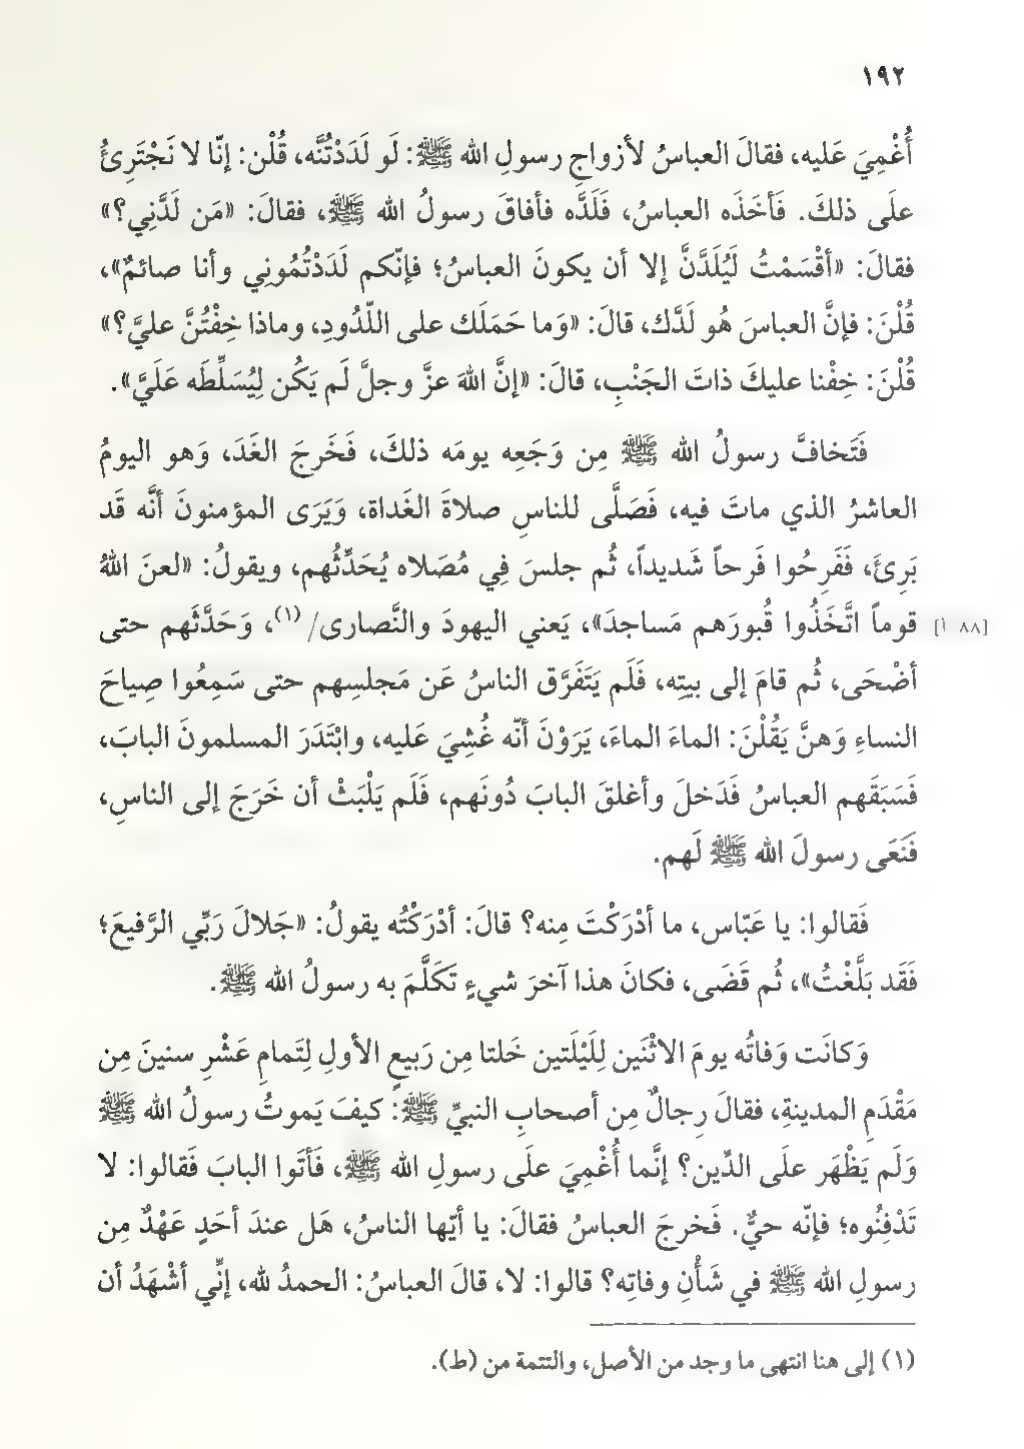 ١٩٢
أُغْمِيَ عَليه، فقالَ العباسُ لأزواجِ رسولِ الله ﷺ: لَو لَدَدْتُنَّه، قُلْن: إنّا لا نَجْتَرِئُ
علَى ذلكَ. فَأخَذَه العباسُ، فَلَدَّه فأفاقَ رسولُ الله ﷺ، فقالَ: «مَن لَدَّنِي؟»
فقالَ: «أقْسَمْتُ لَيُلَدَّنَّ إلا أن يكونَ العباسُ؛ فإنّكم لَدَدْتُمُونِي وأنا صائمٌ»،
قُلْنَ: فإنَّ العباسَ هُو لَدَّك، قالَ: «وَما حَمَلَك على اللّدُودِ، وماذا خِفْتُنَّ عليَّ؟»
قُلْنَ: خِفْنا عليكَ ذاتَ الجَنْبِ، قالَ: «إنَّ اللهَ عزَّ وجلَّ لَم يَكُن لِيُسَلِّطَه عَلَيَّ».
فَتَخافَّ رسولُ الله ﷺ مِن وَجَعِه يومَه ذلكَ، فَخَرجَ الغَدَ، وَهو اليومُ
العاشرُ الذي ماتَ فيه، فَصَلَّى للناسِ صلاةَ الغَداة، وَيَرَى المؤمنونَ أنَّه قَد
بَرِئَ، فَفَرِحُوا فَرحاً شَديداً، ثُم جلسَ فِي مُصَلاه يُحَدِّثُهم، ويقولُ: «لعنَ اللهُ
قوماً اتَّخَذُوا قُبورَهم مَساجدَ»، يَعني اليهودَ والنَّصارى/ (١)، وَحَدَّثَهم حتى [٨٨ أ]
أضْحَى، ثُم قامَ إلى بيتِه، فَلَم يَتَفَرَّق الناسُ عَن مَجلسِهم حتى سَمِعُوا صِياحَ
النساءِ وَهنَّ يَقُلْنَ: الماءَ الماءَ، يَرَوْنَ أنّه غُشِيَ عَليه، وابْتَدَرَ المسلمونَ البابَ،
فَسَبَقَهم العباسُ فَدَخلَ وأغلقَ البابَ دُونَهم، فَلَم يَلْبَثْ أن خَرَجَ إلى الناسِ،
فَنَعَى رسولَ الله ﷺ لَهم.
فَقالوا: يا عَبّاس، ما أدْرَكْتَ مِنه؟ قالَ: أدْرَكْتُه يقولُ: «جَلالَ رَبِّي الرَّفيعَ؛
فَقَد بَلَّغْتُ»، ثُم قَضَى، فكانَ هذا آخرَ شيءٍ تَكَلَّمَ به رسولُ الله ﷺ.
وَكانَت وَفاتُه يومَ الاثْنَين لِلَيْلَتين خَلتا مِن رَبيعٍ الأولِ لِتَمامِ عَشْرِ سنينَ مِن
مَقْدَمِ المدينةِ، فقالَ رِجالٌ مِن أصحابِ النبيِّ ﷺ: كيفَ يَموتُ رسولُ الله ﷺ
وَلَم يَظْهَر علَى الدِّين؟ إنَّما أُغْمِيَ علَى رسولِ الله ﷺ، فَأتَوا البابَ فَقالوا: لا
تَدْفِنُوه؛ فإنّه حيٌّ. فَخرجَ العباسُ فقالَ: يا أيّها الناسُ، هَل عندَ أحَدٍ عَهْدٌ مِن
رسولِ الله ﷺ في شَأْنِ وفاتِه؟ قالوا: لا، قالَ العباسُ: الحمدُ لله، إنِّي أشْهَدُ أن
(١) إلى هنا انتهى ما وجد من الأصل، والتتمة من (ط).